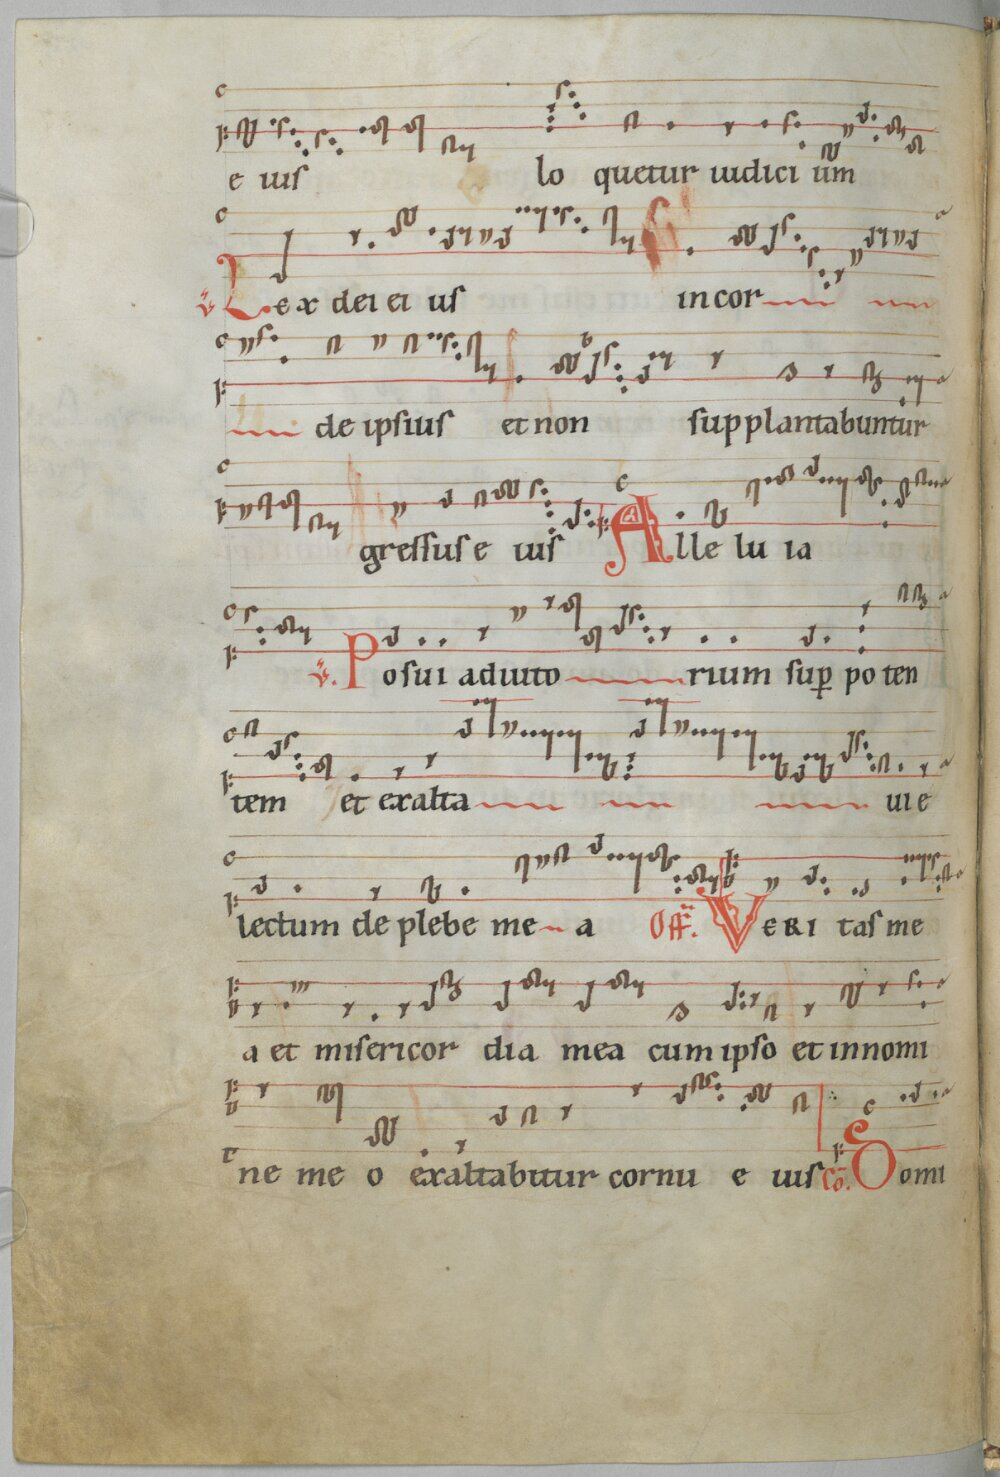 e ius lo quetur iudici um
℣ Lex dei ei us in cor
de ipsius et non supplantabuntur
gressus e ius Alle lu ia
℣. Posui adiuto rium sup̱ po ten
tem et exalta ui e
lectum de plebe me a Off̄. VERI tas me
a et misericor dia mea cum ipso et in nomi
ne me o exaltabitur cornu e ius Cō. Domi